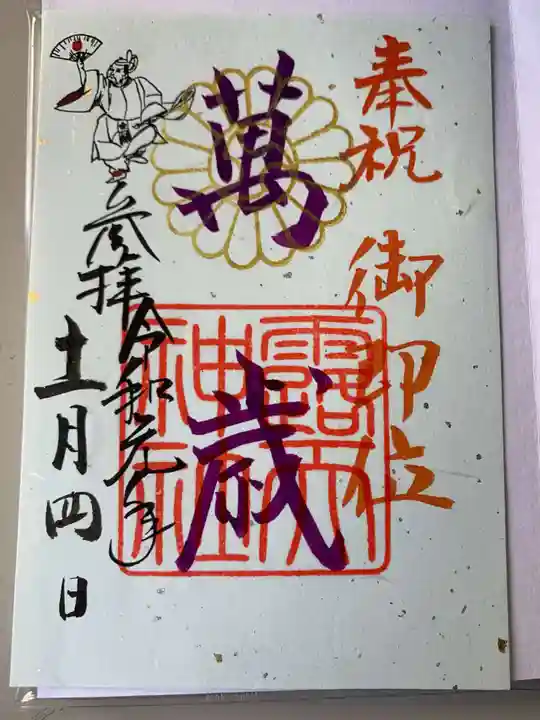 奉祝 御即位
萬歳
露天
神社
参拝 令和元年
十一月四日